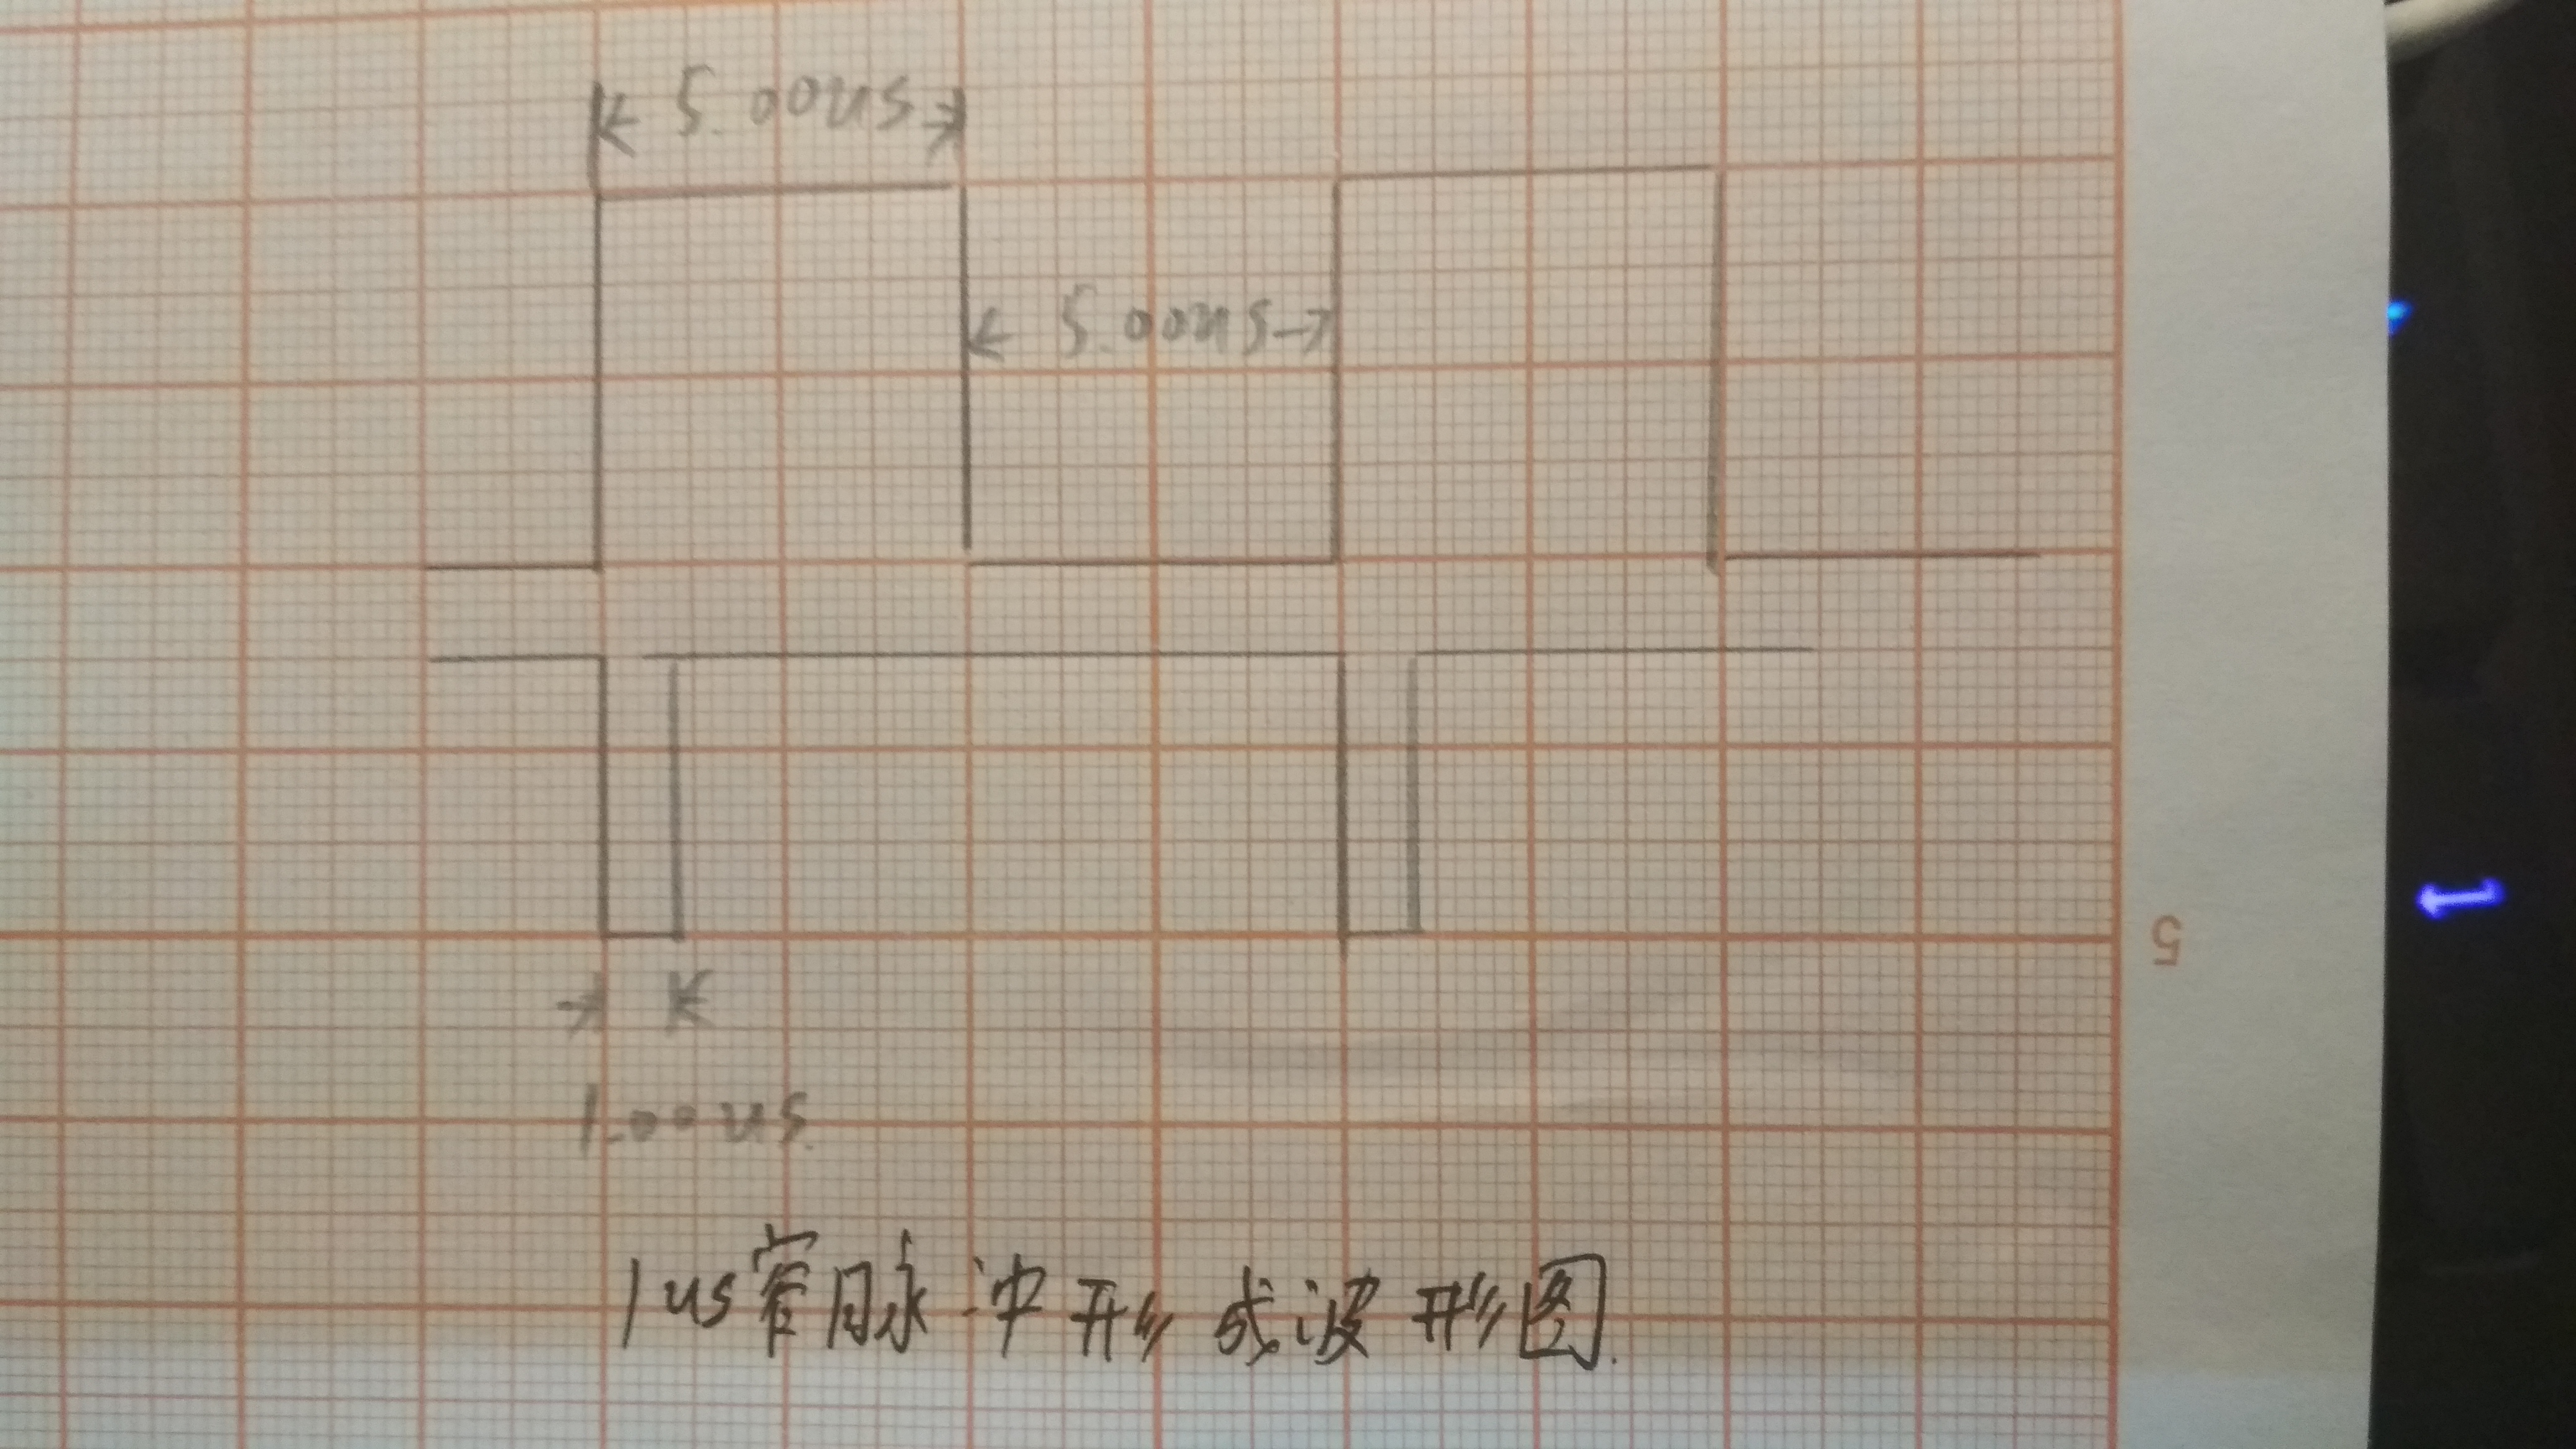 5.00us
5.00us
1.00us
1us窄脉冲形成波形图.
5